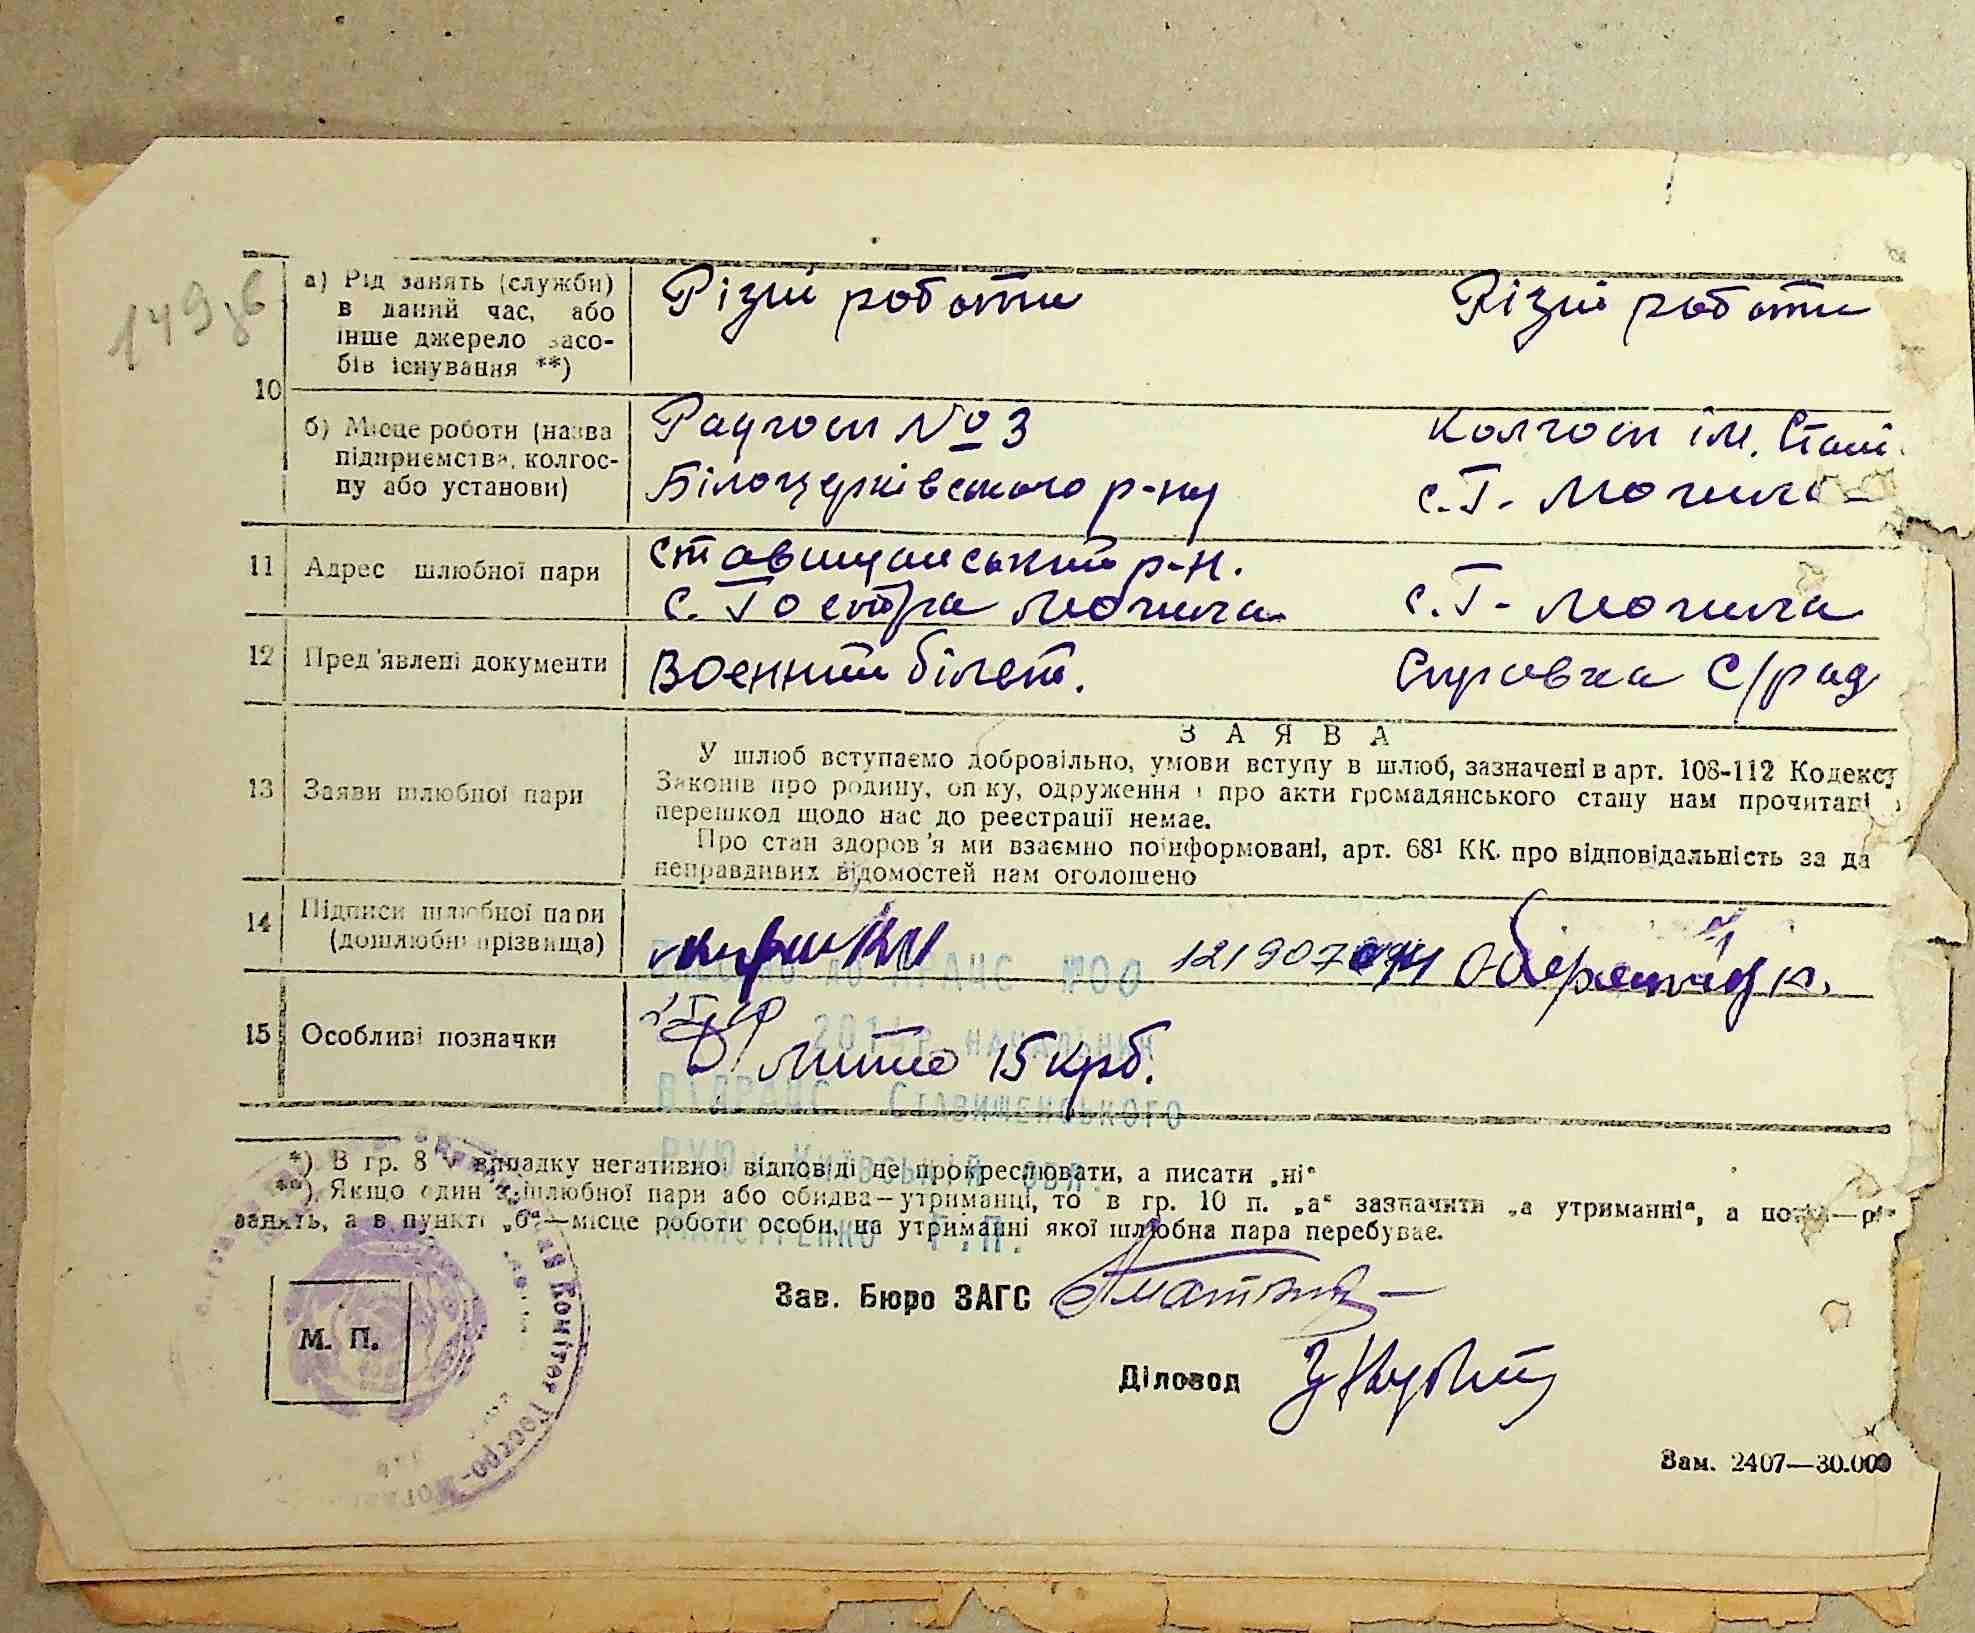 149зв
10
а) Рід занять (служби) в даний час, або інше джерело засобів існування **)
Різні роботи
Різні роботи
б) Місце роботи (назва підприємства, колгоспу або установи)
Радгосп № 3
Білоцерківського р-ну
Колгосп ім. Сталі
с. Г. Могила
11
Адрес шлюбної пари
Ставищанський р-н.
с. Гостра Могила
с. Г. Могила
12
Пред'явлені документи
Воєнний білет.
Справка С/рад
13
Заяви шлюбної пари
ЗАЯВА
У шлюб вступаємо добровільно, умови вступу в шлюб, зазначені в арт. 108-112 Кодексу
Законів про родину, опіку, одруження і про акти громадянського стану нам прочитані
перешкод щодо нас до реєстрації немає.
Про стан здоров'я ми взаємно поінформовані, арт. 68¹ КК. про відповідальність за да
неправдивих відомостей нам оголошено
14
Підписи шлюбної пари
(дошлюбні прізвища)
15
Особливі позначки
мито 15 крб.
2011р. начальник
Ставищенського
РУЮ Київській обл.
*) В гр. 8 у випадку негативної відповіді не прокреслювати, а писати „ні“
**) Якщо один з шлюбної пари або обидва—утриманці, то в гр. 10 п. „а“ зазначити „а утриманні“, а
занять, а в пункті „б“—місце роботи особи, на утриманні якої шлюбна пара перебуває.
М. П.
Зав. Бюро ЗАГС
Діловод
Зам. 2407—30.000